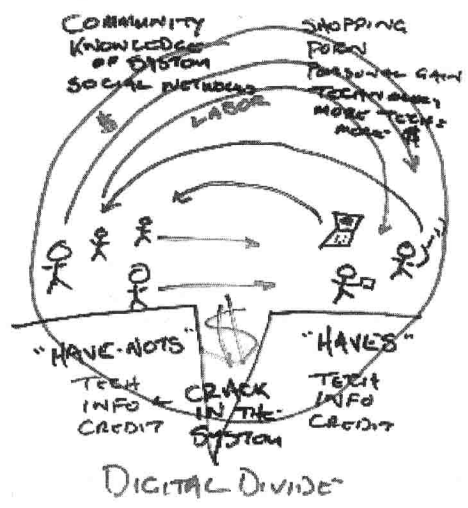 COMMUNITY
KNOWLEDGE
OF SYSTEM
SOCIAL NETWORKS
SHOPPING
PORN
PERSONAL GAIN
TECHNOLOGY
MORE TECH =
MORE $
$
LABOR
$
"HAVE-NOTS"
TECH
INFO
CREDIT
CRACK
IN THE
SYSTEM
"HAVES"
TECH
INFO
CREDIT
DIGITAL DIVIDE